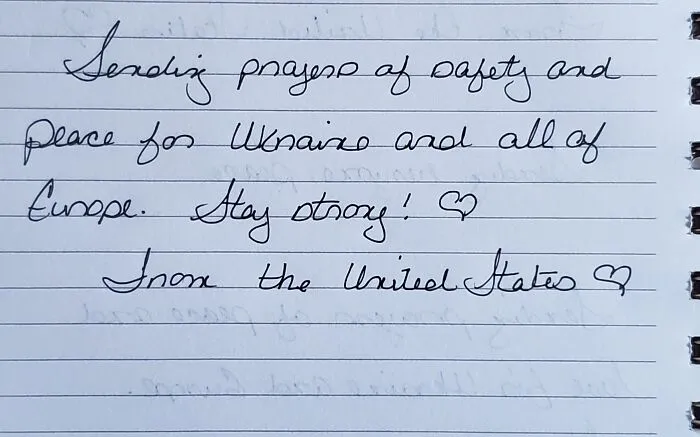 Sending prayers of safety and
peace for Ukraine and all of
Europe. Stay strong! ♡
From the United States ♡